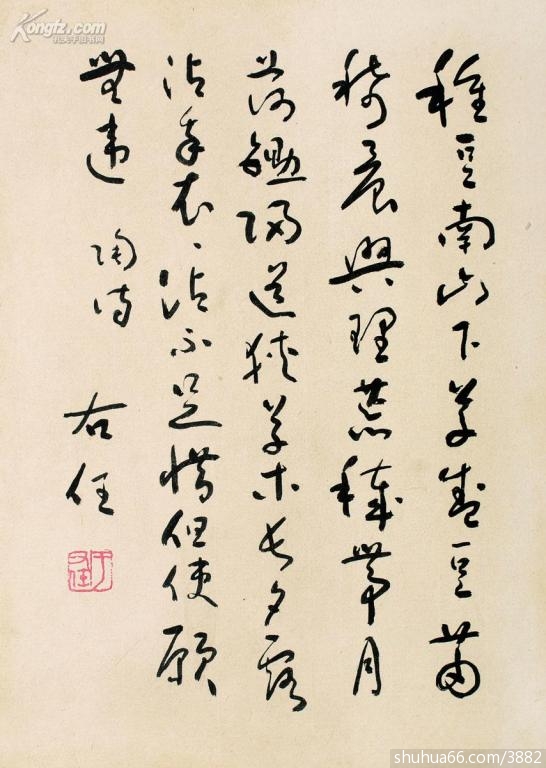 種豆南山下草盛豆苗
稀晨興理荒穢帶月
荷鋤歸道狹草木長夕露
沾我衣、沾不足惜但使願
無違 陶詩 右任
于右任
Kongfz.com
孔夫子旧书网
shuhua66.com/3882